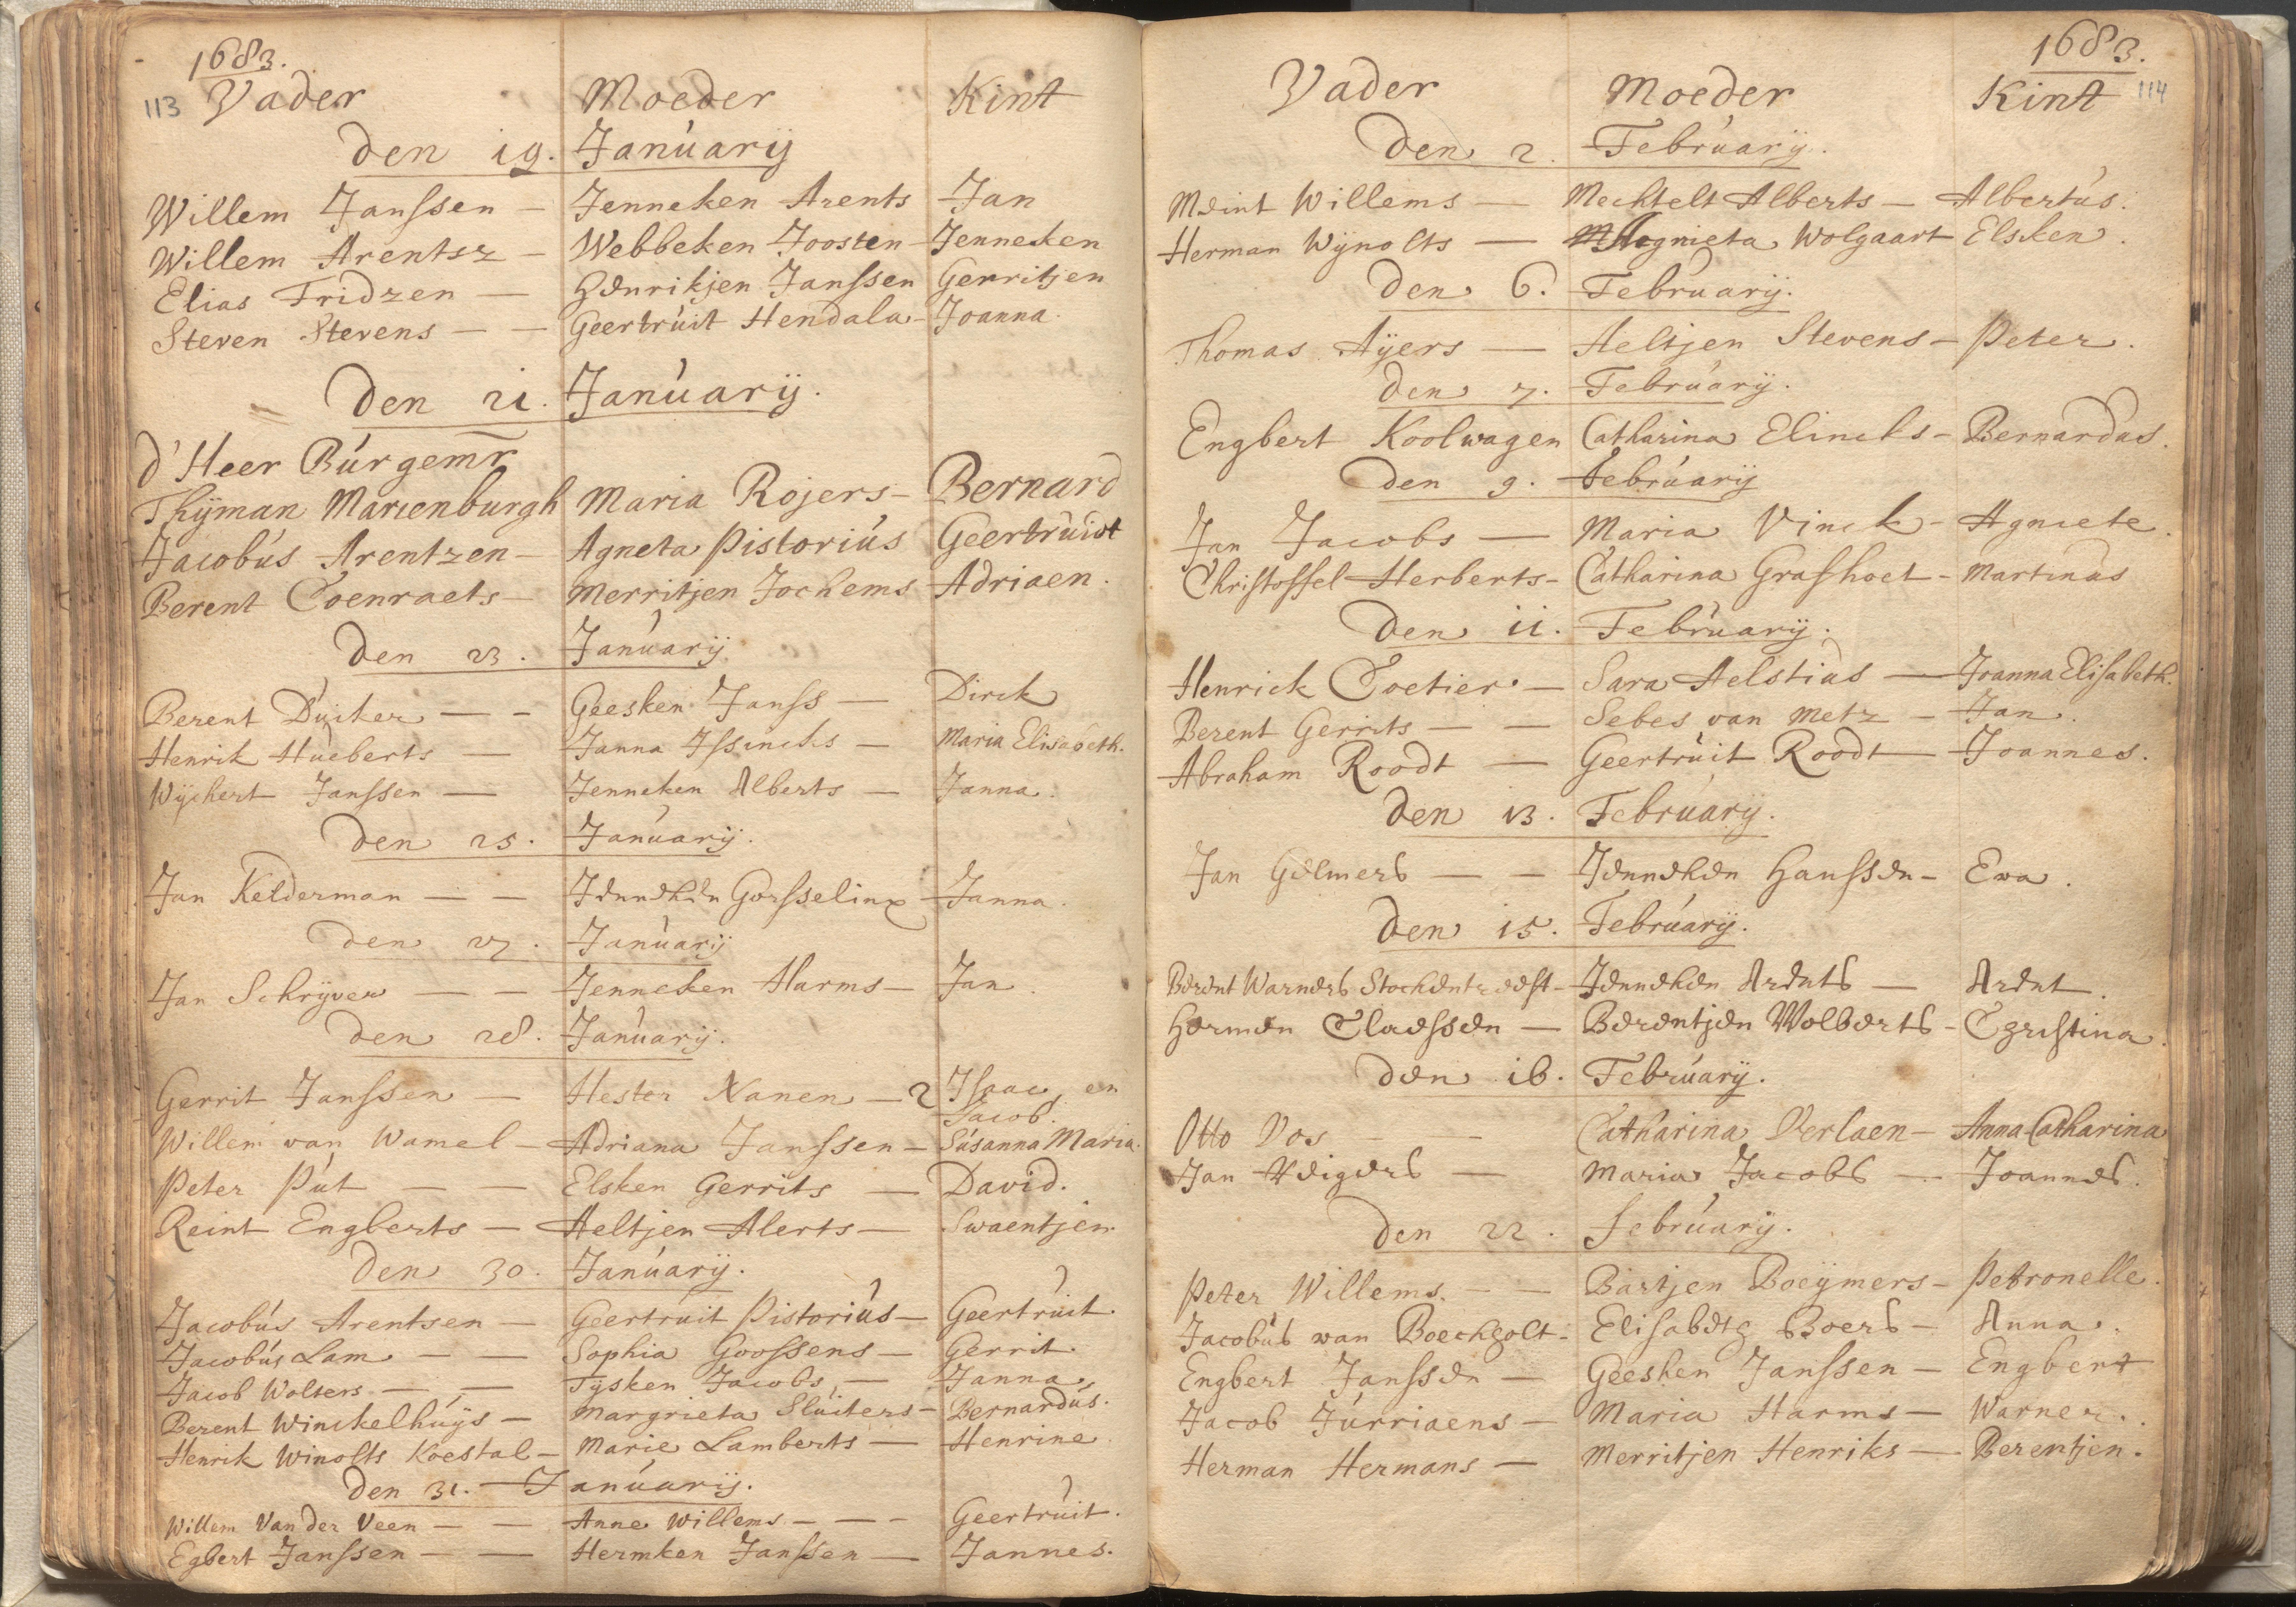 1683.
113 Vader Moeder Kint
Den 19. Január̈y
Willem Janssen — Jenneken Arents Jan
Willem Arentsz — Webbeken Joosten — Jenneken
Elias Fridzen — Henrikjen Janssen Gerritjen
Steven Stevens — — Geertrúit Hendala — Joanna.
Den 21. Januarÿ.
d'Heer Búrgemr
Thÿman Marienburgh Maria Rojers — Bernard
Jacobús Arentzen — Agneta Pistoriús Geertruidt
Berent Coenraets — Merritjen Jochems Adriaen.
Den 23. Januarÿ
Berent Duiker — — Geesken Janss — Dirck
Henrik Hueberts — Janna Issincks — Maria Elisabeth.
Wÿchert Janssen — Jenneken Alberts — Janna.
Den 25. Januarÿ.
Jan Kelderman — — Jenneken Gorsselinx — Janna.
Den 27. Januarÿ
Jan Schrÿver — — Jenneken Harms — Jan.
Den 28. Januarÿ.
Gerrit Janssen — Hester Nanen — 2 Isaac en
Jacob.
Willem van Wamel — Adriana Janssen — Súsanna Maria.
Peter Pút — — Elsken Gerrits — David.
Reint Engberts — Aeltjen Alerts — Swaentjen.
Den 30. Januarÿ.
Jacobús Arentsen — Geertruit Pistoriús — Geertrúit.
Jacobús Lam — — Sophia Goossens — Gerrit.
Jacob Wolters — — Tÿsken Jacobs — Janna.
Berent Winckelhúÿs — Margrieta Slúiters — Bernardús.
Henrik Winolts Koestal — Marie Lamberts — Henrine.
Den 31. Januarÿ.
Willem Van der Veen — — Anne Willems — — — Geertrúit.
Egbert Janssen — — Hermken Janssen — Jannes.
1683.
Vader Moeder Kint 114
Den 2. Februarÿ.
Meint Willems — Mechtelt Alberts — Albertús.
Herman Wÿnolts — Agnieta Wolgaart Elsken.
Den 6. Februarÿ.
Thomas Aÿers — Aeltjen Stevens — Peter.
Den 7. Februarÿ.
Engbert Koolwagen Catharina Elincks — Bernardus.
Den 9. Februarÿ
Jan Jacobs — Maria Vinck — Agniete.
Christoffel Herberts — Catharina Grashoet — Martinus
Den 11. Februarÿ.
Henrick Coetier — Sara Aelstius — Joanna Elisabeth.
Berent Gerrits — — Sebes van Metz — Jan.
Abraham Roodt — Geertruit Roodt — Joannes.
Den 13. Februarÿ.
Jan Gelmers — — Jenneken Hanssen — Eva.
Den 15. Februarÿ.
Berent Warners Stockentreest — Jenneken Arents — Arent.
Hermen Claessen — Berentjen Wolberts — Christina.
Den 16. Februarÿ.
Otto Vos — — Catharina Verlaen — Anna Catharina
Jan Weigers — Maria Jacobs — Joannes.
Den 22. Februarÿ.
Peter Willems. — — Bartjen Boeÿmers — Petronelle.
Jacobús van Boeckholt — Elisabeth Boers — Anna.
Engbert Janssen — Geesken Janssen — Engbert
Jacob Júrriaens — Maria Harms — Warner.
Herman Hermans — Merritjen Henriks — Berentjen.